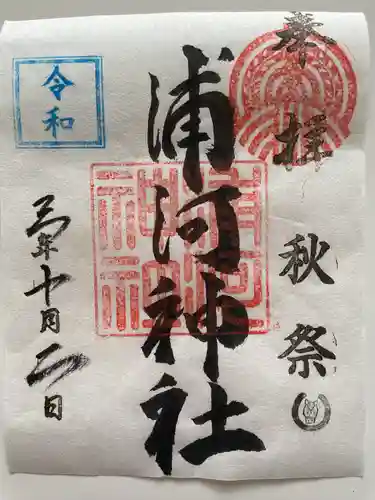 奉拝
秋祭
浦河神社
令和
三年十月二日